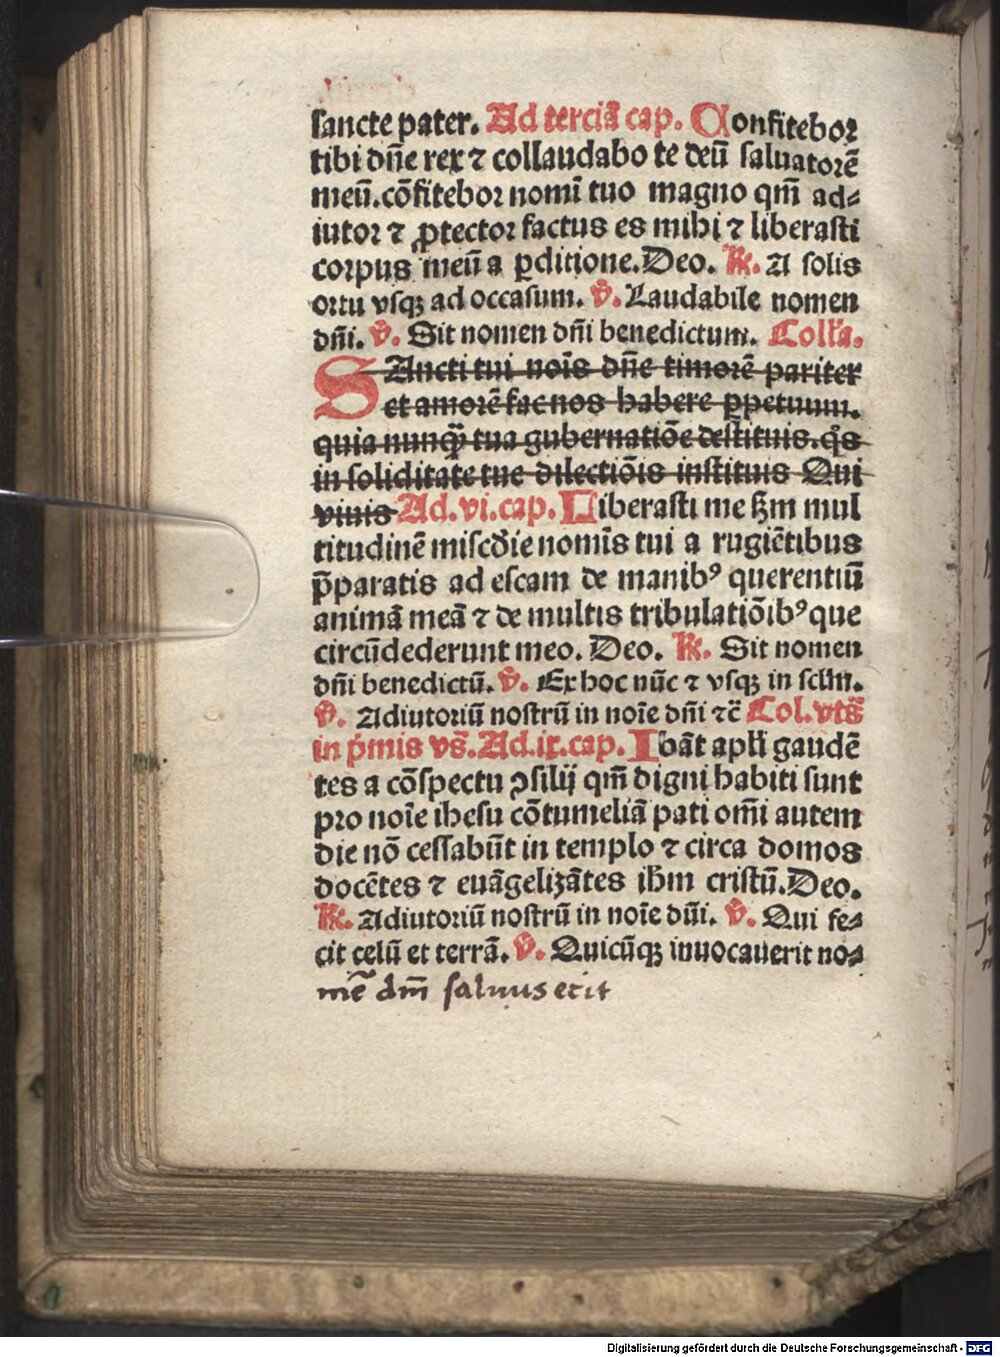 sancte pater. Ad terciã cap. Confitebor
tibi dñe rex ⁊ collaudabo te deũ saluatorẽ
meũ.cõfitebor nomĩ tuo magno qm̃ ad⸗
iutor ⁊ ꝓtector factus es mihi ⁊ liberasti
corpus meũ a ꝑditione.Deo. ℟. A solis
ortu vsqꝫ ad occasum. ℣. Laudabile nomen
dñi. ℣. Sit nomen dñi benedictum. Coll'a.
SAncti tui noĩs dñe timorẽ pariter
et amorẽ fac nos habere ꝑpetuum.
quia nunqꝫ̃ tua gubernatiõe destituis.q̃s
in soliditate tue dilectiõis instituis Qui
viuis Ad.vi.cap. Liberasti me ẜm mul
titudinẽ misc̃die nomĩs tui a rugiẽtibus
p̃paratis ad escam de manibꝰ querentiũ
animã meã ⁊ de multis tribulatiõibꝰ que
circũdederunt meo. Deo. ℟. Sit nomen
dñi benedictũ. ℣. Ex hoc nũc ⁊ vsqꝫ in sclm̃.
℣. Adiutoriũ nostrũ in noĩe dñi ⁊c̃ Col.vts̃
in p̃mis vs̃.Ad.ix.cap. Ibãt apl'i gaudẽ
tes a cõspectu ꝯsilij qm̃ digni habiti sunt
pro noĩe ihesu cõtumeliã pati om̃i autem
die nõ cessabũt in templo ⁊ circa domos
docẽtes ⁊ euãgelizãtes ih̃m cristũ.Deo.
℟. Adiutoriũ nostrũ in noĩe dñi. ℣. Qui fe⸗
cit celũ et terrã. ℣. Quicũqꝫ inuocauerit no⸗
mẽ dm̃ saluus erit
Digitalisierung gefördert durch die Deutsche Forschungsgemeinschaft - DFG